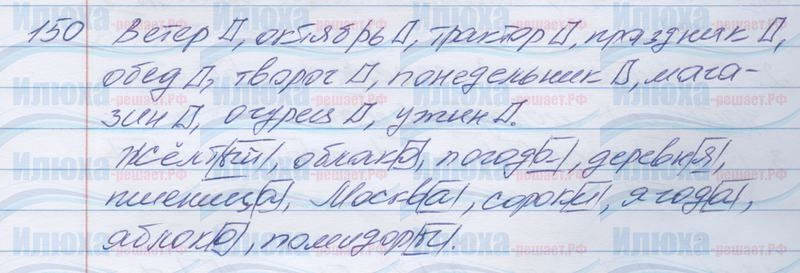 150 Ветер □, октябрь □, трактор □, праздник □,
обед □, творог □, понедельник □, мага-
зин □, огурец □, ужин □.
Жёлт|ый|, облак|о|, погод|а|, деревн|я|,
пшениц|а|, Москв|а|, сорок|и|, ягод|а|,
яблок|о|, помидор|ы|.
Илюха-решает.РФ